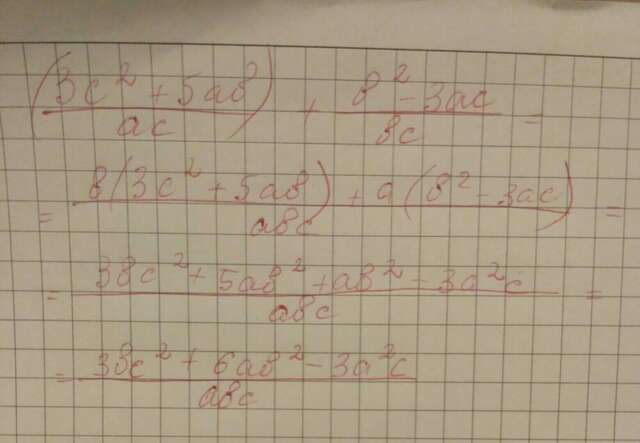 (3c² + 5ab)/ac + b² - 3ac/bc =
= b(3c² + 5ab) + a(b² - 3ac)/abc =
= 3bc² + 5ab² + ab² - 3a²c/abc =
= 3bc² + 6ab² - 3a²c/abc